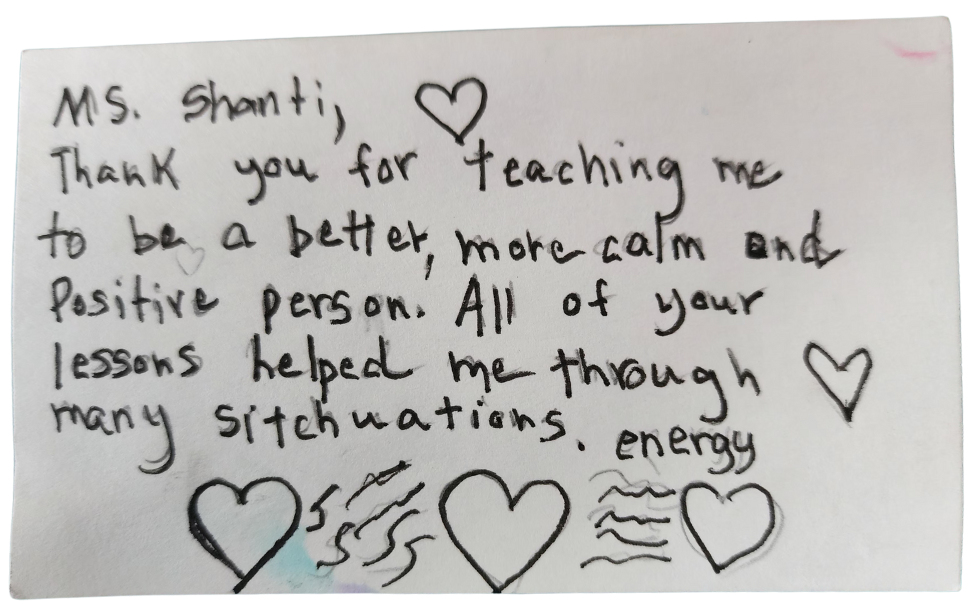 Ms. Shanti,
Thank you for teaching me
to be a better, more calm and
Positive person. All of your
lessons helped me through
many sitchuations.
energy